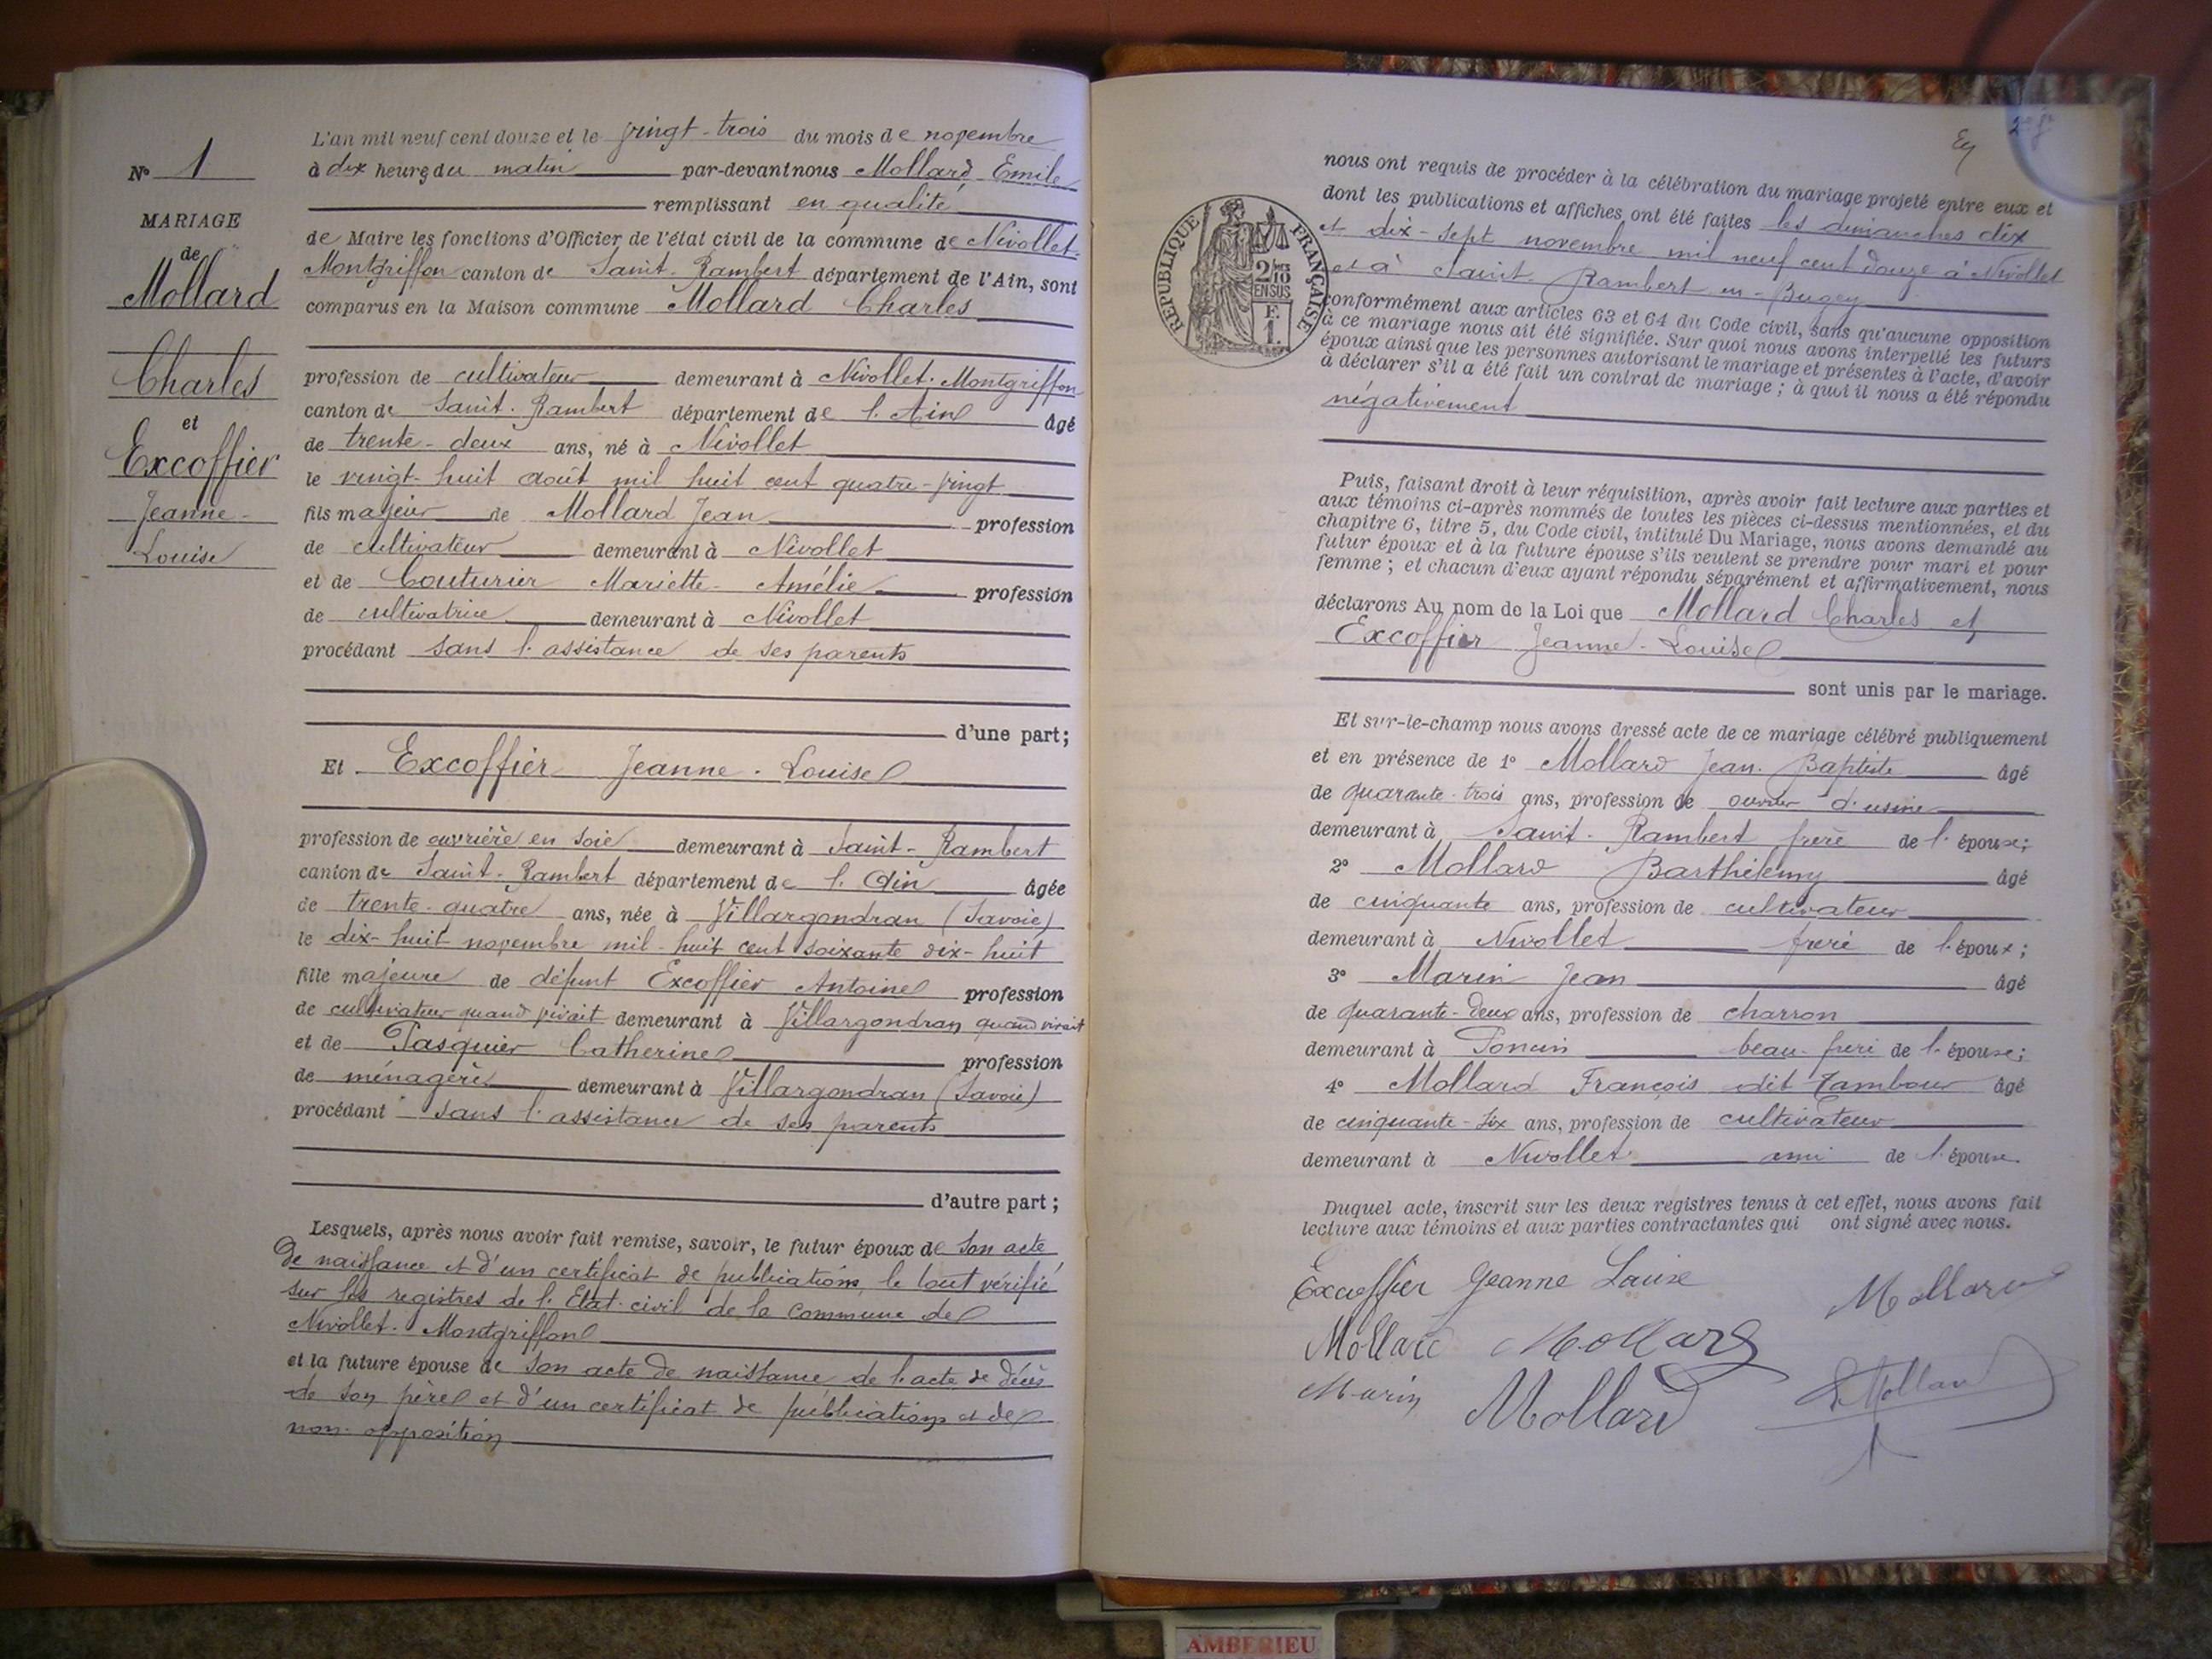 N° 1
MARIAGE
de
Mollard
Charles
et
Excoffier
Jeanne-
Louise
L'an mil neuf cent douze et le vingt-trois du mois de novembre
à dix heures du matin par-devant nous Mollard Emile
remplissant en qualité
de Maire les fonctions d'Officier de l'état civil de la commune de Nivollet-
Montgriffon canton de Saint-Rambert département de l'Ain, sont
comparus en la Maison commune Mollard Charles
profession de cultivateur demeurant à Nivollet-Montgriffon
canton de Saint-Rambert département de l'Ain âgé
de trente-deux ans, né à Nivollet
le vingt-huit août mil huit cent quatre-vingt
fils majeur de Mollard Jean profession
de cultivateur demeurant à Nivollet
et de Couturier Mariette-Amélie profession
de cultivatrice demeurant à Nivollet
procédant sans l'assistance de ses parents
d'une part;
Et Excoffier Jeanne-Louise
profession de ouvrière en soie demeurant à Saint-Rambert
canton de Saint-Rambert département de l'Ain âgée
de trente-quatre ans, née à Villargondran (Savoie)
le dix-huit novembre mil-huit cent soixante dix-huit
fille majeure de défunt Excoffier Antoine profession
de cultivateur quand vivait demeurant à Villargondran quand vivait
et de Pasquier Catherine profession
de ménagère demeurant à Villargondran (Savoie)
procédant sans l'assistance de ses parents
d'autre part;
Lesquels, après nous avoir fait remise, savoir, le futur époux de son acte
de naissance et d'un certificat de publications, le tout vérifié
sur les registres de l'Etat-civil de la commune de
Nivollet-Montgriffon
et la future épouse de son acte de naissance de l'acte de décès
de son père et d'un certificat de publications et de
non-opposition
RÉPUBLIQUE FRANÇAISE
2/10 EN SUS
F.
1.
nous ont requis de procéder à la célébration du mariage projeté entre eux et
dont les publications et affiches ont été faites les dimanches dix
et dix-sept novembre mil neuf cent douze à Nivollet
et à Saint-Rambert-en-Bugey
conformément aux articles 63 et 64 du Code civil, sans qu'aucune opposition
à ce mariage nous ait été signifiée. Sur quoi nous avons interpellé les futurs
époux ainsi que les personnes autorisant le mariage et présentes à l'acte, d'avoir
à déclarer s'il a été fait un contrat de mariage; à quoi il nous a été répondu
négativement
Puis, faisant droit à leur réquisition, après avoir fait lecture aux parties et
aux témoins ci-après nommés de toutes les pièces ci-dessus mentionnées, et du
chapitre 6, titre 5, du Code civil, intitulé Du Mariage, nous avons demandé au
futur époux et à la future épouse s'ils veulent se prendre pour mari et pour
femme; et chacun d'eux ayant répondu séparément et affirmativement, nous
déclarons Au nom de la Loi que Mollard Charles et
Excoffier Jeanne-Louise
sont unis par le mariage.
Et sur-le-champ nous avons dressé acte de ce mariage célébré publiquement
et en présence de 1° Mollard Jean-Baptiste âgé
de quarante-trois ans, profession de ouvrier d'usine
demeurant à Saint-Rambert frère de l'époux;
2° Mollard Barthélemy âgé
de cinquante ans, profession de cultivateur
demeurant à Nivollet frère de l'époux;
3° Marin Jean âgé
de quarante-deux ans, profession de charron
demeurant à Poncin beau-frère de l'épouse;
4° Mollard François dit Tambour âgé
de cinquante-six ans, profession de cultivateur
demeurant à Nivollet ami de l'épouse
Duquel acte, inscrit sur les deux registres tenus à cet effet, nous avons fait
lecture aux témoins et aux parties contractantes qui ont signé avec nous.
Excoffier Jeanne Louise Mollard
Mollard Mollard
Marin Mollard Mollard
AMBERIEU